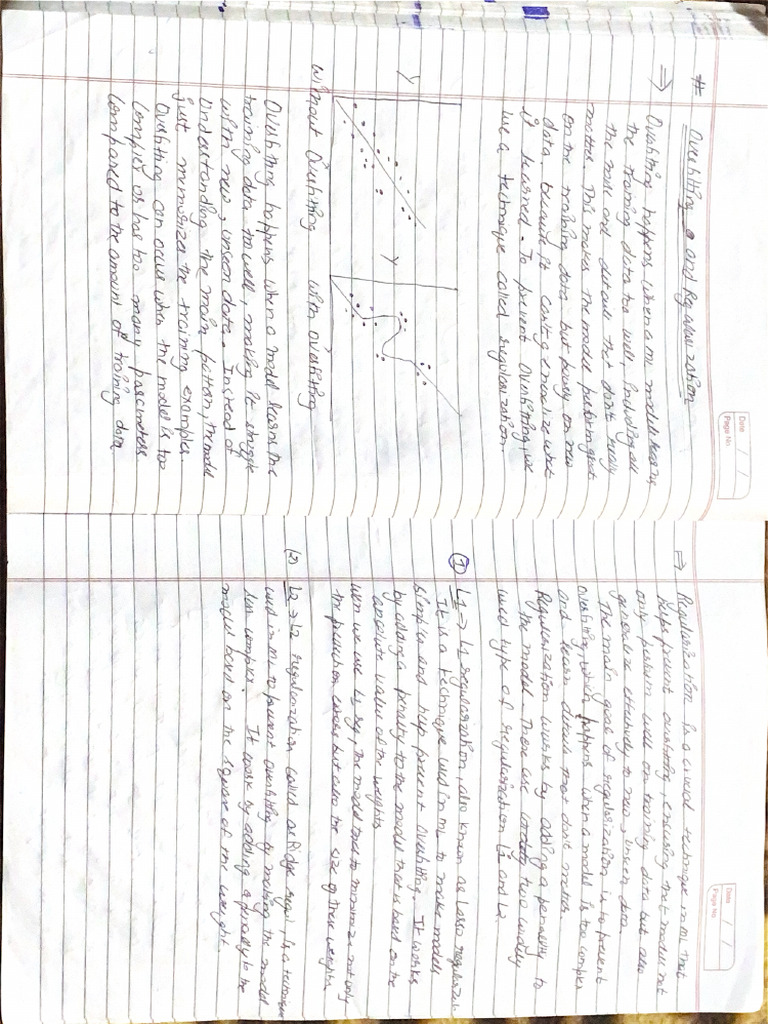 Date / /
Page No
# Overfitting and Regularization
⇒ Overfitting happens when a ML model learns
the training data too well, including all
the noise and details that don't really
matter. This makes the model perform great
on the training data but poorly on new
data because it can't generalize what
it learned. To prevent overfitting, we
use a technique called regularization.
Y
Y
without overfitting
with overfitting
Overfitting happens when a model learns the
training data to well, making it struggle
with new, unseen data. Instead of
understanding the main pattern, the model
just memorizes the training examples.
Overfitting can occurs when the model is too
complex or has too many parameters
compared to the amount of training data
Date / /
Page No
⇒ Regularization is a crucial technique in ML that
helps prevent overfitting, ensuring that models not
only perform well on training data but also
generalize effectively to new, unseen data.
The main goal of regularization is to prevent
overfitting, which happens when a model is too complex
and learn details that don't matter.
Regularization works by adding a penality to
the model. There are two widley
used type of regularization L1 and L2
(1) L1 → L1 regularization, also known as Lasso
It is a technique used in ML to make models
simpler and help prevent overfitting. It works
by adding a penalty to the model that is based on the
absolute value of the weights
when we use L1 reg, the model tries to minimize not only
the prediction errors but also the size of these weights
(2) L2 → L2 regularization called as Ridge reg, is a technique
used in ML to prevent overfitting by making the model
less complex. It work by adding a penalty to the
model based on the square of the weight.